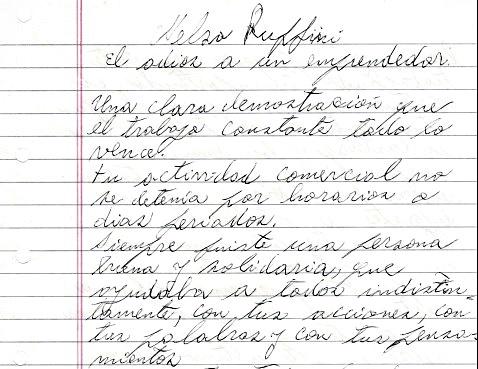 Nelso Ruffini
El adios a un emprendedor.
Una clara demostración que
el trabajo constante todo lo
vence.
Tu actividad comercial no
se detenía por horarios o
dias feriados.
Siempre fuiste una persona
buena y solidaria, que
ayudaba a todos indistin-
tamente, con tus acciones, con
tus palabras y con tus pensa-
mientos